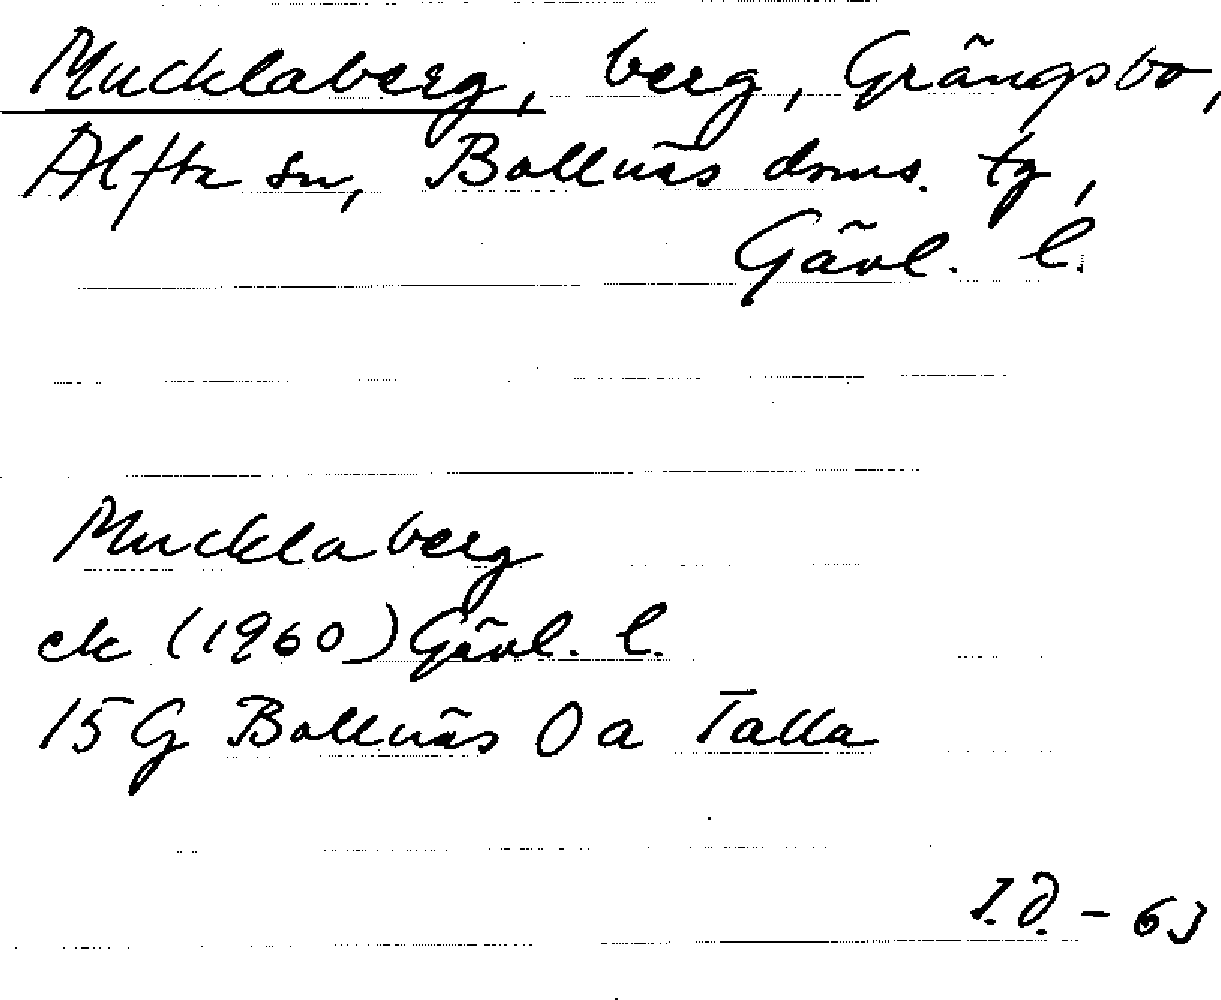 Mucklaberg, berg, Grängsbo,
Alfta sn, Bollnäs doms. tg,
Gävl. l.
Mucklaberg
ek (1960) Gävl. l.
15 G Bollnäs 0 a Talla
I.d. - 63